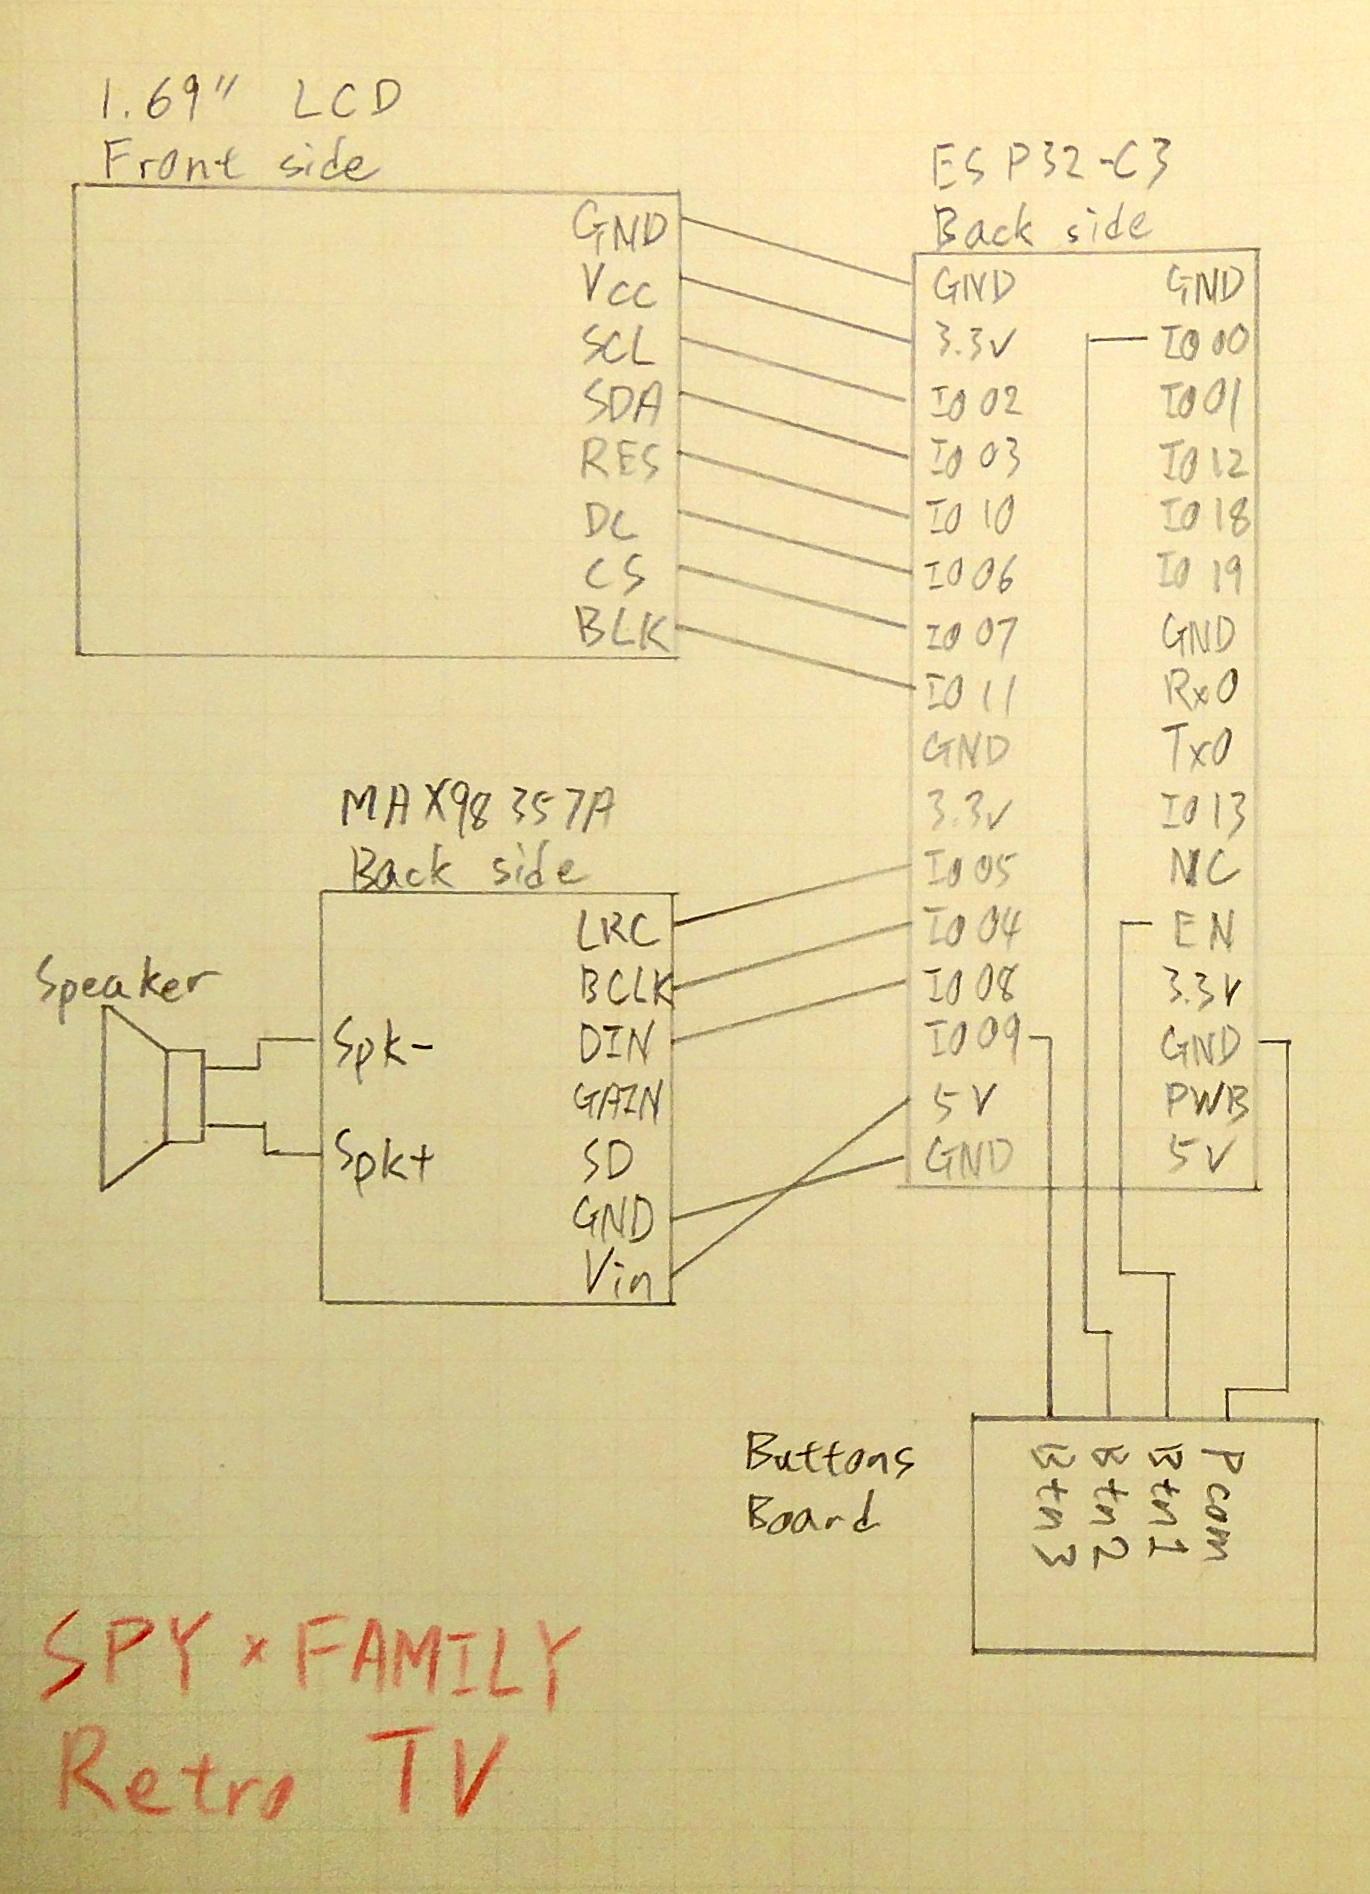 1.69" LCD
Front side
GND
Vcc
SCL
SDA
RES
DC
CS
BLK
ESP32-C3
Back side
GND
3.3V
IO 02
IO 03
IO 10
IO 06
IO 07
IO 11
GND
3.3V
IO 05
IO 04
IO 08
IO 09
5V
GND
GND
IO 00
IO 01
IO 12
IO 18
IO 19
GND
Rx0
Tx0
IO 13
NC
EN
3.3V
GND
PWB
5V
MAX98357A
Back side
LRC
BCLK
DIN
GAIN
SD
GND
Vin
Spk-
Spk+
Speaker
Buttons
Board
Btn3
Btn2
Btn1
Pcom
SPY×FAMILY
Retro TV